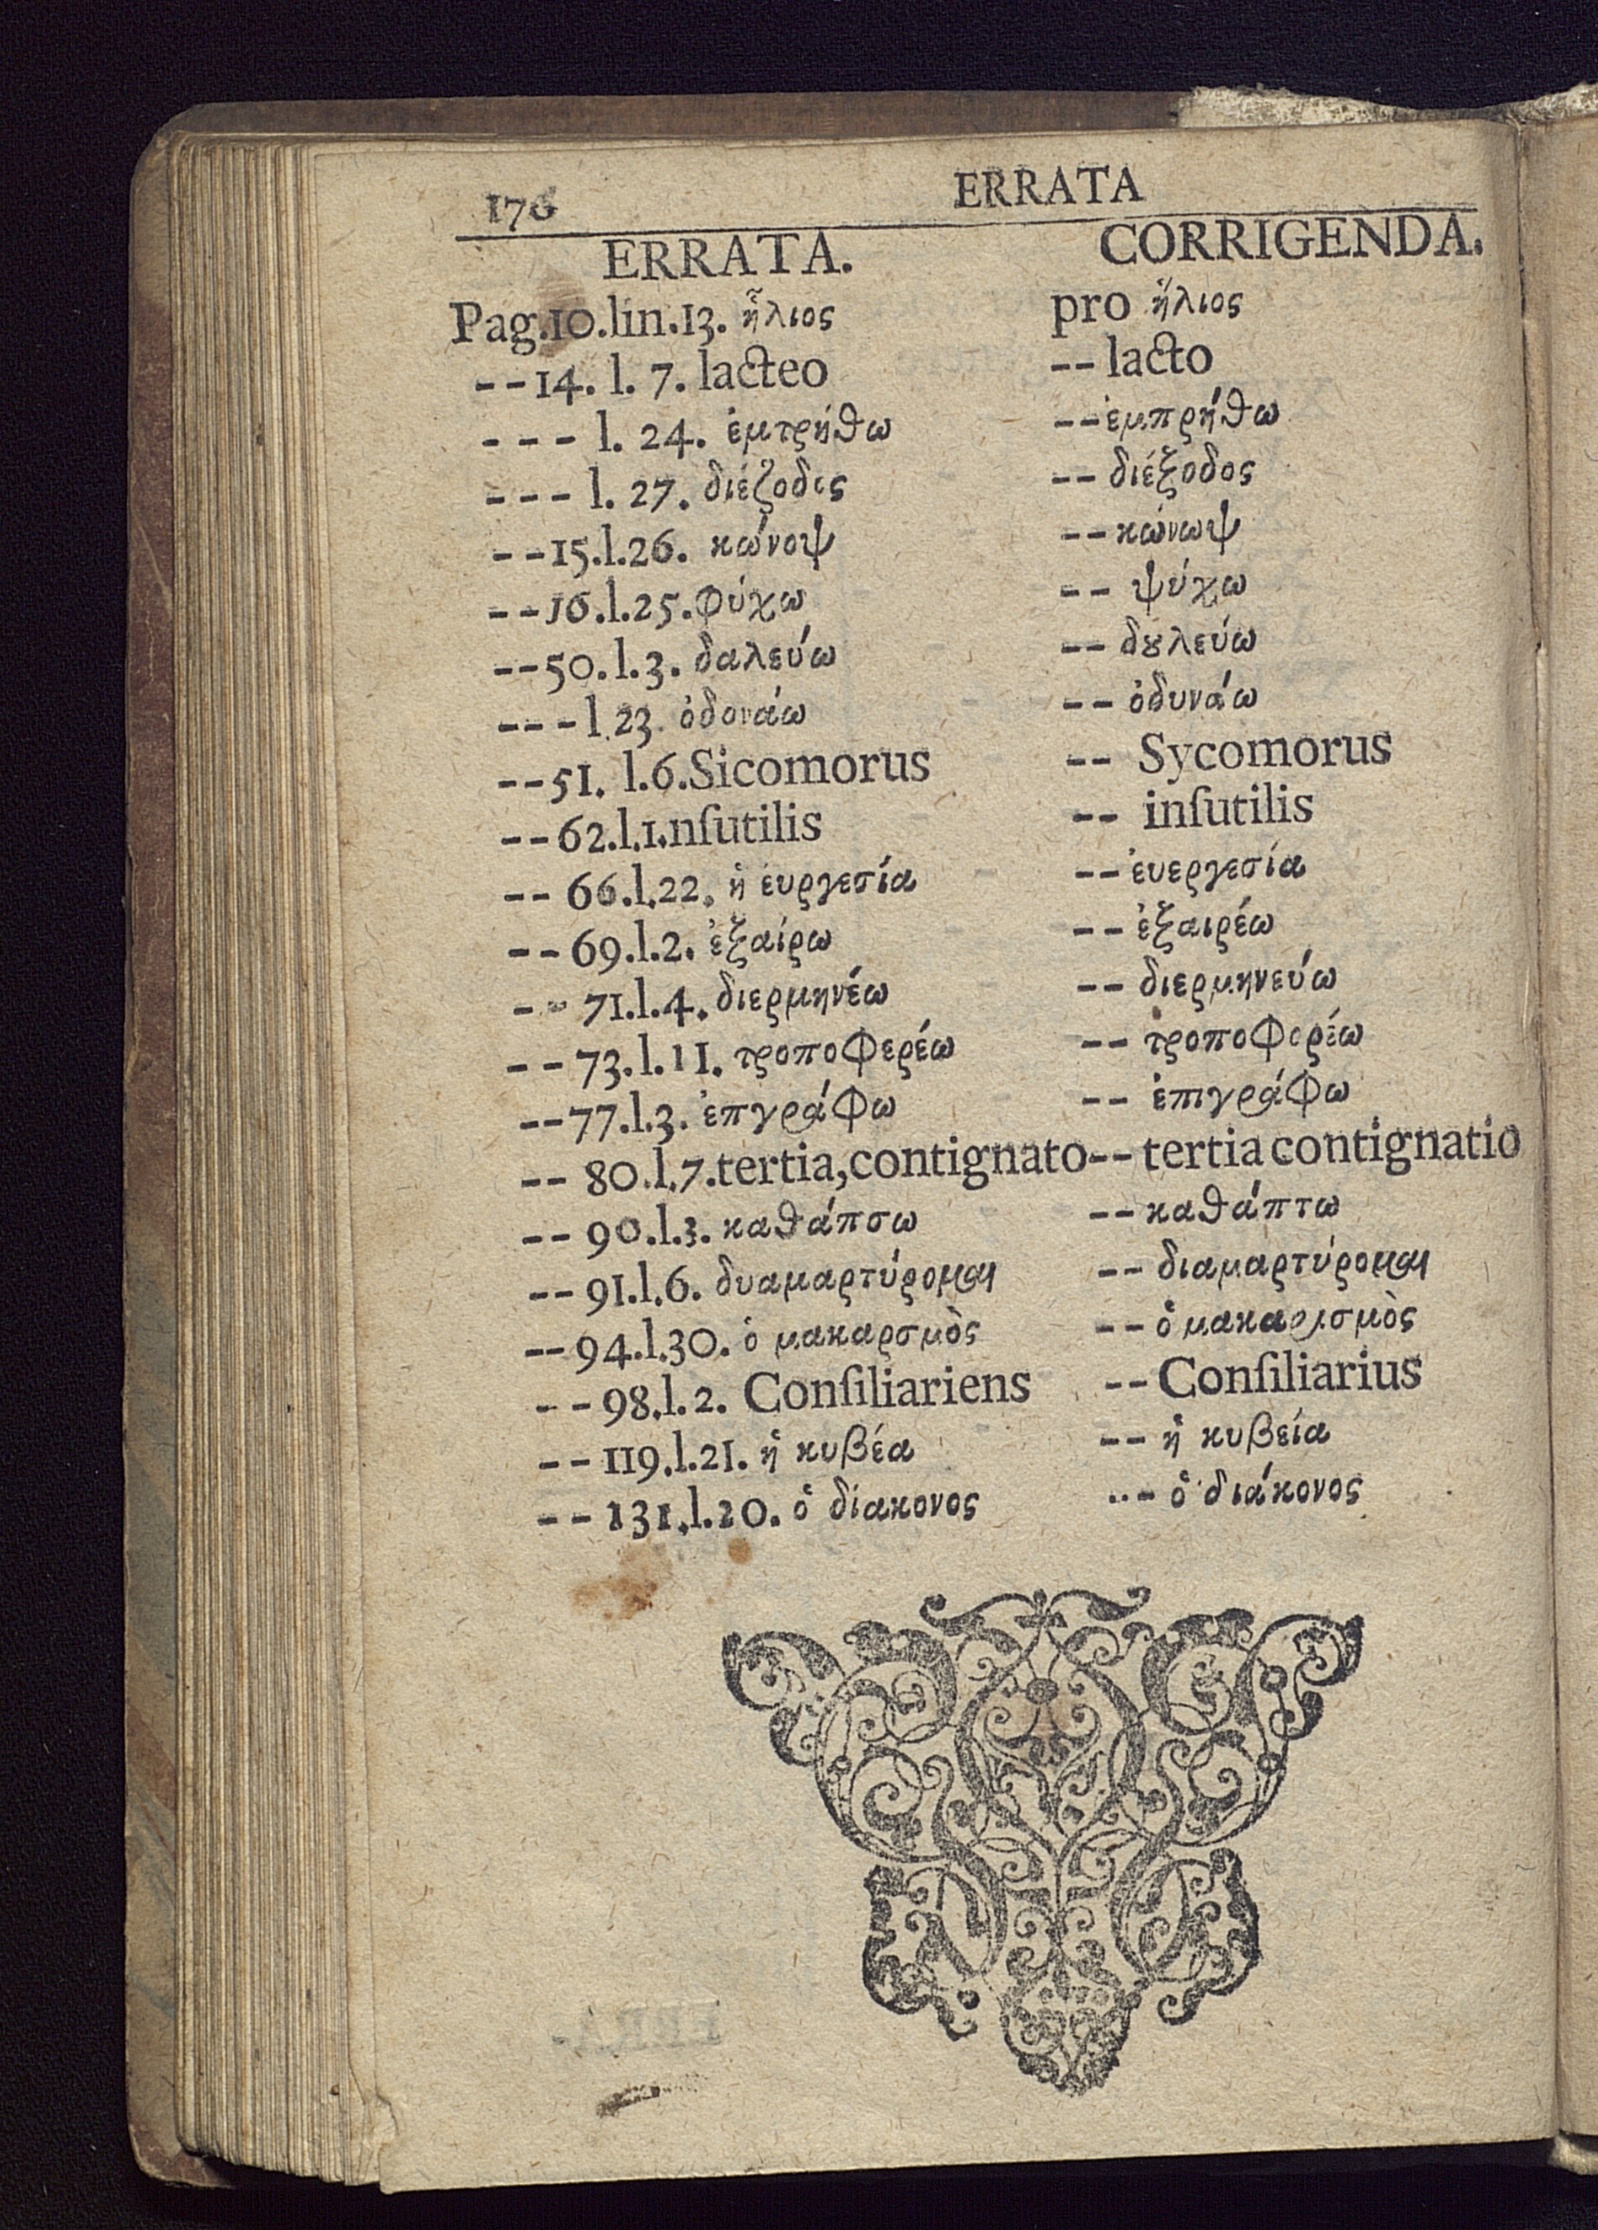 176 ERRATA
ERRATA. CORRIGENDA.
Pag.10.lin.13. ἦλιος pro ἥλιος
--14. l. 7. lacteo --lacto
--- l. 24. ἐμτρήθω --ἐμπρήθω
--- l. 27. διέζοδος -- διέξοδος
--15.l.26. κώνοψ --κώνωψ
--16.l.25.φύχω -- ψύχω
--50.l.3. δαλεύω -- δȣλεύω
---l.23. ὀδονάω -- ὀδυνάω
--51. l.6.Sicomorus -- Sycomorus
--62.l.1.nſutilis -- inſutilis
-- 66.l.22. ἡ ἐυργεσία --ἐυεργεσία
--69.l.2. ἐξαίρω --ἐξαιρέω
-- 71.l.4. διερμηνέω -- διερμηνεύω
--73.l.11. τροποφερέω -- τροποφορέω
--77.l.3. ἐπγράφω -- ἐπιγράφω
-- 80.l.7.tertia,contignato--tertia contignatio
-- 90.l.3. καθάπσω --καθάπτω
--91.l.6. δυαμαρτύρομαι --διαμαρτύρομαι
--94.l.30. ὁ μακαρσμὸς --ὁ μακαρισμὸς
--98.l.2. Conſiliariens --Conſiliarius
--119.l.21. ἡ κυβέα -- ἡ κυβεία
--131.l.20. ὁ δίακονος --ὁ διάκονος